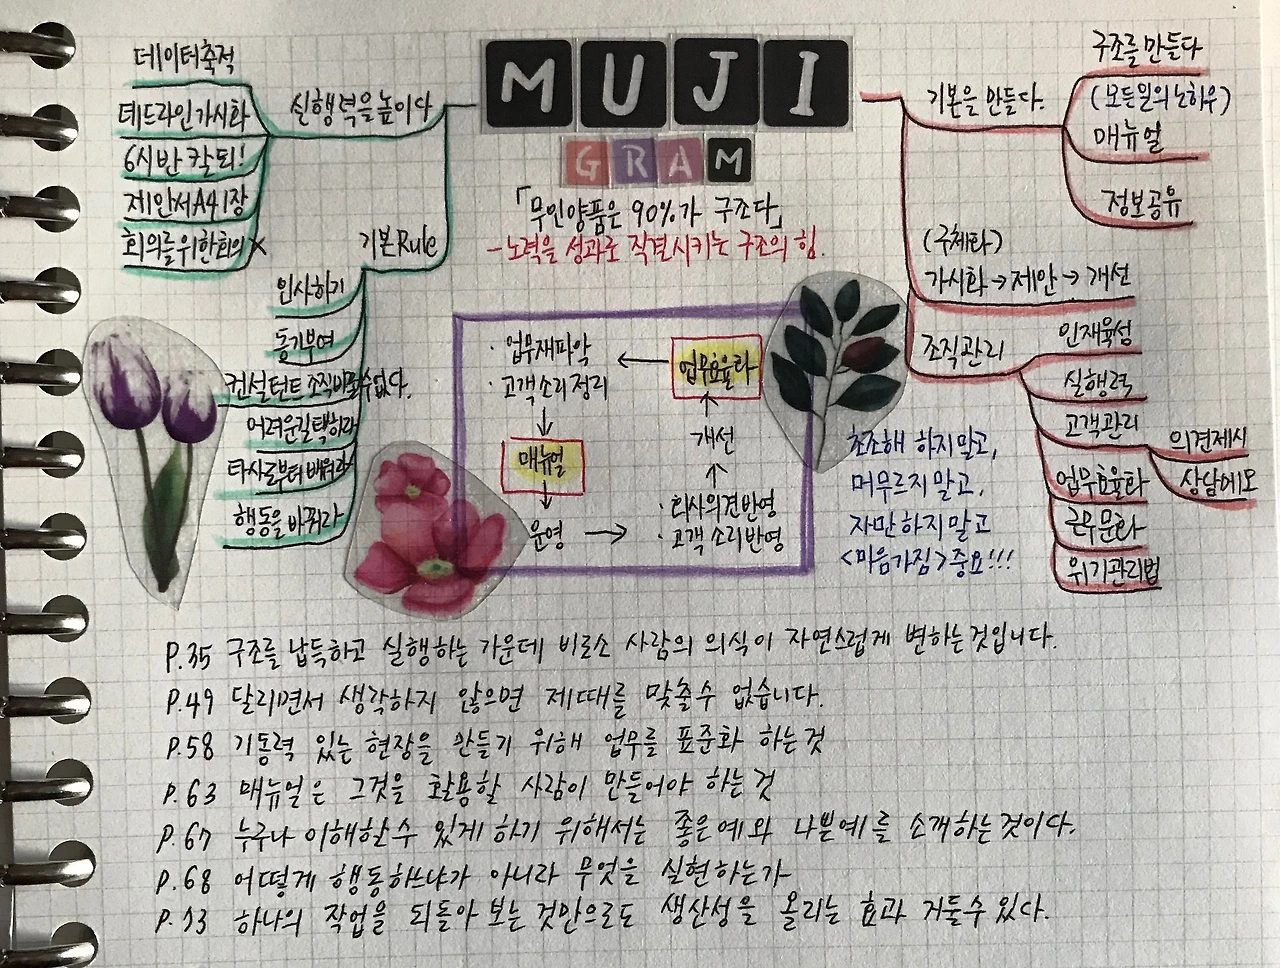 MUJI
GRAM
「무인양품은 90%가 구조다」
- 노력을 성과로 직결시키는 구조의 힘.
실행력을 높이다
데이터축적
데드라인가시화
6시반 칼퇴!
제안서A41장
회의를위한회의X
기본Rule
인사하기
동기부여
컨설턴트 조직바꿀수없다.
어려운길택하라
타사로부터 배워라
행동을 바꿔라
기본을 만들다.
구조를 만들다
(모든일의 노하우)
매뉴얼
정보공유
(구체화)
가시화→제안→개선
조직관리
인재육성
실행력
고객관리
의견제시
상담메모
업무효율화
근무문화
위기관리법
· 업무재파악
· 고객소리정리
매뉴얼
운영
· 회사의견반영
· 고객 소리반영
개선
업무효율화
초조해 하지말고,
머무르지 말고,
자만하지 말고
<마음가짐>중요!!!
P.35 구조를 납득하고 실행하는 가운데 비로소 사람의 의식이 자연스럽게 변하는것입니다.
P.49 달리면서 생각하지 않으면 제때를 맞출수 없습니다.
P.58 기동력 있는 현장을 만들기 위해 업무를 표준화 하는것
P.63 매뉴얼은 그것을 활용할 사람이 만들어야 하는 것
P.67 누구나 이해할수 있게 하기 위해서는 좋은예와 나쁜예를 소개하는것이다.
P.68 어떻게 행동하느냐가 아니라 무엇을 실현하는가
P.73 하나의 작업을 되돌아 보는 것만으로도 생산성을 올리는 효과 거둘수 있다.